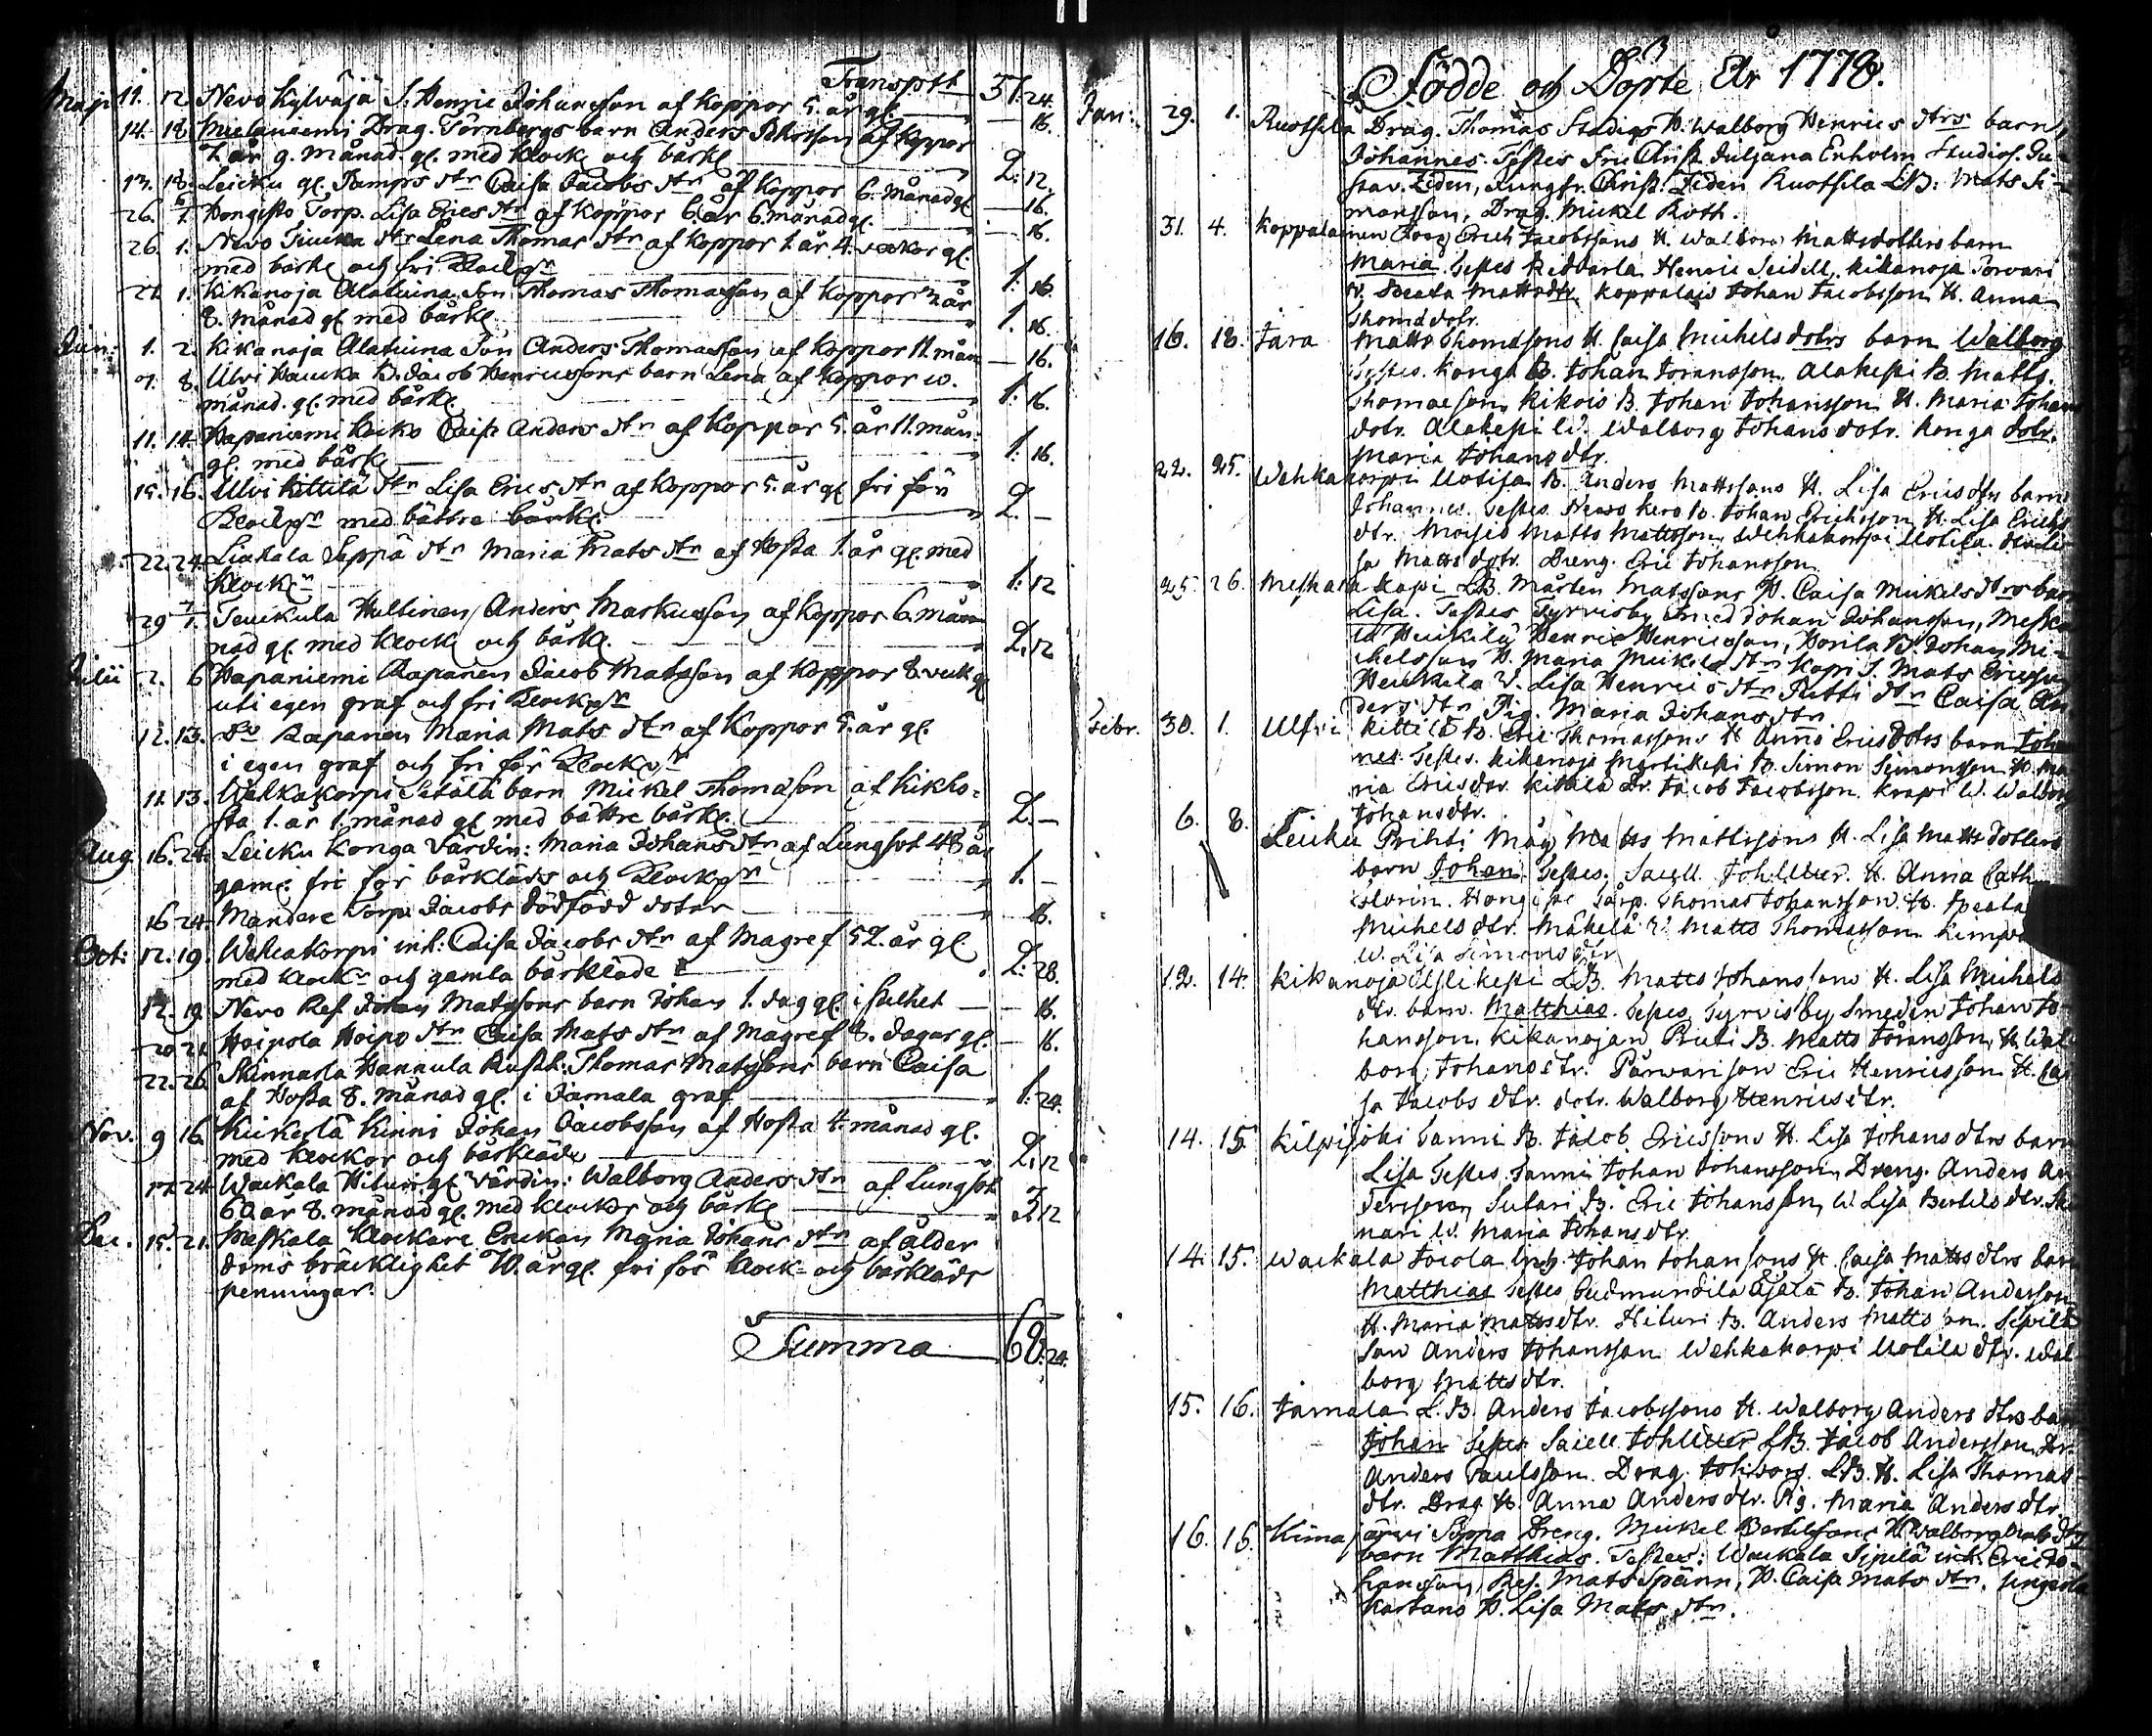 Transport 57. 24.
Maji 11. 12. Nevo Kylväjä S. Henric Johansson af koppor 5. år gl. — 16.
14. 18. Mielaniemi Drag. Törnbergs barn Anders Johansson af koppor
7. år 9. månad. gl. med klock och bårkl. 2: 12.
13. 18. Leicku gl. Tamps dtr Caisa Jacobs dtr af Koppor 6. månad gl — 16.
26. 1. Hongisto Torp. Lisa Erics dtr af koppor 6. år 6. månad gl. — 16.
26. 1. Nevo Tiucka dtr Lena Thomas dtr af koppor 1. år 4. veckor gl.
med bårkl och fri Klockpr 1: 16.
27. 1. Kikanoja Alatuina Son Thomas Thomasson af Koppor 2. år
8. månad gl med bårkl. 1. 16.
Jun: 1. 2. Kikanoja Alatuina Son Anders Thomasson af koppor 11. mån — 16.
7. 8. Ulvi Paucka B. Jacob Henricssons barn Lena af koppor 10.
månad. gl. med bårkl. 1: 16.
11. 14. Hapaniemi Kocko Caisa Anders dtr af Koppor 5. år 11. mån.
gl. med bårkl 1: 16.
15. 16. Ulvi Kittilä dtr Lisa Erics dtr af koppor 5. år gl fri för
Klockpr med bättre bårkl. 2. —
22. 24. Liukala Seppä dtr Maria Mats dtr af Hosta 1. år gl. med
Klockr 1: 12
29. 1. Teuckula Hallinen Anders Markusson af koppor 6. må
nad gl. med klock och bårkl. 2. 12
Julii 2. 6 Hapaniemi Rapanen Jacob Matsson af koppor 8. veck gl
uti egen graf och fri Klockpr
12. 13. Do Rapanen Maria Mats dtr af Koppor 5. år gl.
i egen graf och fri för Klockpr
11. 13. Wähkakorpi Setälä barn Mickel Thomasson af Kikho-
sta 1. år 1. månad gl med bättre bårkl. 2. —
Aug. 16. 24. Leicku Konga Värdin: Maria Johans dtr af Lungsot 48 år
gamel. fri för bårkläds och Klockpr 1. —
16. 24. Mandere Torp. Jacobs dödfödd dotter 16.
Oct: 17. 19. Wehcakorpi inh: Caisa Jacobs dtr af Magref 52. år gl.
med klockr och gamla bårkläde 2: 28.
17. 19. Nevo Ref. Johan Matssons barn Johan 1. dag gl. — 16.
20 21 Hoipola Hoipo dtr Caisa Mats dtr af Magref 8. dagar gl. — 16.
22. 26. Skinnarla Hannula Rusth. Thomas Matssons barn Caisa
af Hosta 8. månad gl. i Jamala graf 1: 24.
Nov. 9 16. Kickerlä Kinni Johan Jacobsson af Hosta 4 månad gl.
med klockor och bårkläde 2. 12
17. 24 Wackala Hituri gl. Värdin: Walborg Anders dtr af Lungsot
60 år 8. månad gl. med klockor och bårkl 3. 12
Dec. 15. 21. Meskala Klockare Enckan Maria Johans dtr af ålder
doms bräcklighet 70. år gl. fri för klock- och bårkläds
penningar.
Summa 68. 24.
Födde och Döpte År 1778.
Jan: 29. 1. Ruotsila Drag. Thomas Stadigs H. Walborg Henrics dtrs barn,
Johannes. Testes Fru Christ. Juliana Enholm, Studios. Gu-
stav. Ziden, Jungfr. Christ. Ziden Ruotsila LB: Mats Si-
monsson, Drag. Mickel Roth.
31. 4. Koppalainen Erich Jacobssons H. Walborg Mattsdotters barn
Maria. Testes Henric Seidell, Kikanoja Torvari
H. Beata Matts dtr. Koppalais Johan Jacobsson H. Anna
Thomæ dotr.
16. 18. Jara Matts Thomæsons H. Caisa Michels dotrs barn Walborg
Testes. Konga B. Johan Göransson. Alakespi B. Matts.
Thomæson Kikois B. Johan Johansson H. Maria Johans
dotr. Alakespi W. Walborg Johans dotr. Konga dotr.
Maria Johans dtr.
22. 25. Wehkakorpi Uotila B. Anders Mattssons H. Lisa Erics dtrs barn
Johannes. Testes Newo Kero B. Johan Ericksson H. Lisa Erichs
dtr. Moisio Matts Mattsson, Wehkakorpi Uotila
sa Matts dotr. Dreng. Eric Johansson.
25. 26. Meskala Kapi LB. Mårten Matssons H. Caisa Mickels dtrs barn
Lisa. Testes Syrvisby Smed Johan Johansson, Meska-
la Heickilä Henric Henricsson, Horila B. Johan Mi-
ckelsson H. Maria Mickels dtr Kapi S. Mats Ericsson
Heickilä W. Lisa Henrics dtr Rutti dtr Caisa An
ders dtr Pig. Maria Johans dtr.
Febr. 30. 1. Ulfvi Kittilä B. Eric Thomassons H Anna Erics dotrs barn Johan
nes. Testes. Kikanoja Myrtikespi B. Simon Simonsson H. Ma
ria Erics dtr. Kittilä Dr. Jacob Jacobsson. Krapi W. Walborg
Johans dtr.
6. 8. Leicku Prihti Måg Matts Mattssons H. Lisa Matts dotters
barn Johan. Testes. H. Anna Cath.
Florin. Hongisto Torp. Thomas Johansson. H. Beata
Michels dtr. Mäkelä W. Matts Thomasson
W. Lisa Simons dtr
12. 14. Kikanoja Ylikespi LB. Matts Johanssons H. Lisa Michels
dtr. barn. Matthias. Testes, Syrvisby Smeden Johan Jo-
hansson. Kikanojan Ruti B. Matts Göransson, H. Wal
borg Johans dtr. Parvari son Eric Henricsson H. Cai
sa Jacobs dtr. dotr. Walborg Henrics dtr.
14. 15. Kilpisjoki Sanni B. Jacob Ericssons H. Lisa Johans dtrs barn
Lisa Testes Sanni Johan Johansson, Dreng. Anders An
dersson, Sutari B. Eric Johansson, W. Lisa Bertils dtr.
nari W. Maria Johans dtr.
14. 15. Wackala Johan Johanssons H. Caisa Matts dtrs barn
Matthias Testes Gudmundila Äjälä B. Johan Andersson
H. Maria Matts dtr. Hituri B. Anders Mattsson. Sipilä
Son Anders Johansson Wehkakorpi Uotila dtr. Wal
borg Matts dtr.
15. 16. Jamala L.B. Anders Jacobssons H. Walborg Anders dtrs barn
Johan Testes LB. Jacob Andersson, Dr.
Anders Paulsson. Drag. LB. H. Lisa Thomas
dtr. Drag H. Anna Anders dtr. Pig. Maria Anders dtr
16. 15. Kimajärvi Seppä Dreng. Mickel Bertilssons H. Walborg Mats dtrs
barn Matthias. Testes: Wackala Sipilä inh. Eric Jo-
hansson, Ref. Mats Spänn, H. Caisa Mats dtr.
Kartano H. Lisa Mats dtr.